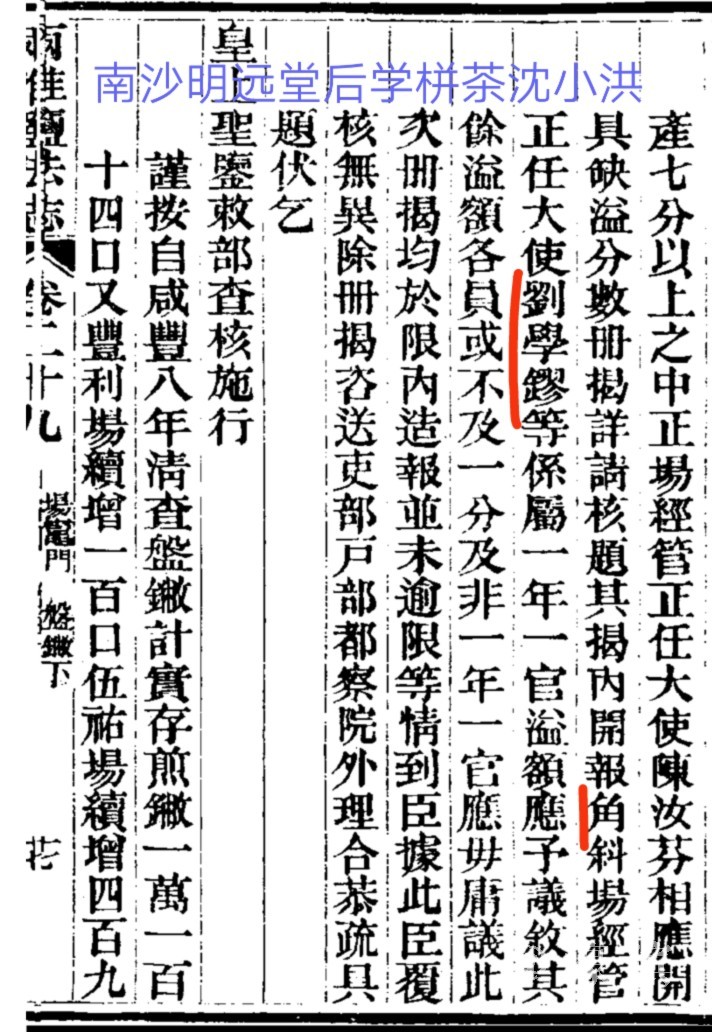 南沙明远堂后学栟茶沈小洪
產七分以上之中正場經管正任大使陳汝芬相應開
具缺溢分數冊揭詳請核題其揭內開報角斜場經管
正任大使劉學鏐等係屬一年一官溢額應予議敘其
餘溢額各員或不及一分及非一年一官應毋庸議此
次冊揭均於限內造報並未逾限等情到臣據此臣覆
核無異除冊揭咨送吏部戶部都察院外理合恭疏具
題伏乞
皇上聖鑒敕部查核施行
謹按自咸豐八年清查盤𨫼計實存煎𨫼一萬一百
十四口又豐利場續增一百口伍祐場續增四百九
兩淮鹽法志 卷二十九 場竈門 盤𨫼下